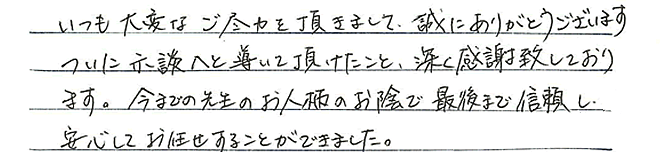 いつも大変なご尽力を頂きまして、誠にありがとうございます
ついに示談へと導いて頂けたこと、深く感謝致しており
ます。今までの先生のお人柄のお陰で最後まで信頼し、
安心してお任せすることができました。